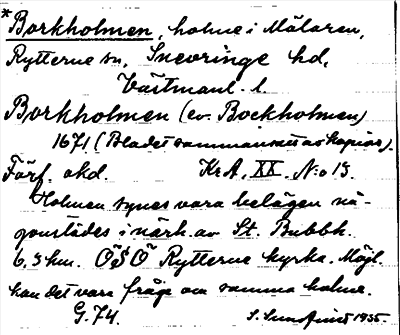 *Borkholmen, holme i Mälaren,
Rytterne sn, Snevringe hd,
Västmanl. l.
Borkholmen (ev. Bockholmen)
1671 (Bladet sammansatt av kopior).
Förf. okd. Kr.A. XX. N:o 13.
Holmen synes vara belägen nå-
gonstädes i närh. av St. Bubbh.
6.3 km. ÖSÖ Rytterne kyrka. Möjl.
kan det vara fråga om samma holme.
G. 74. S. Sundqvist 1935.